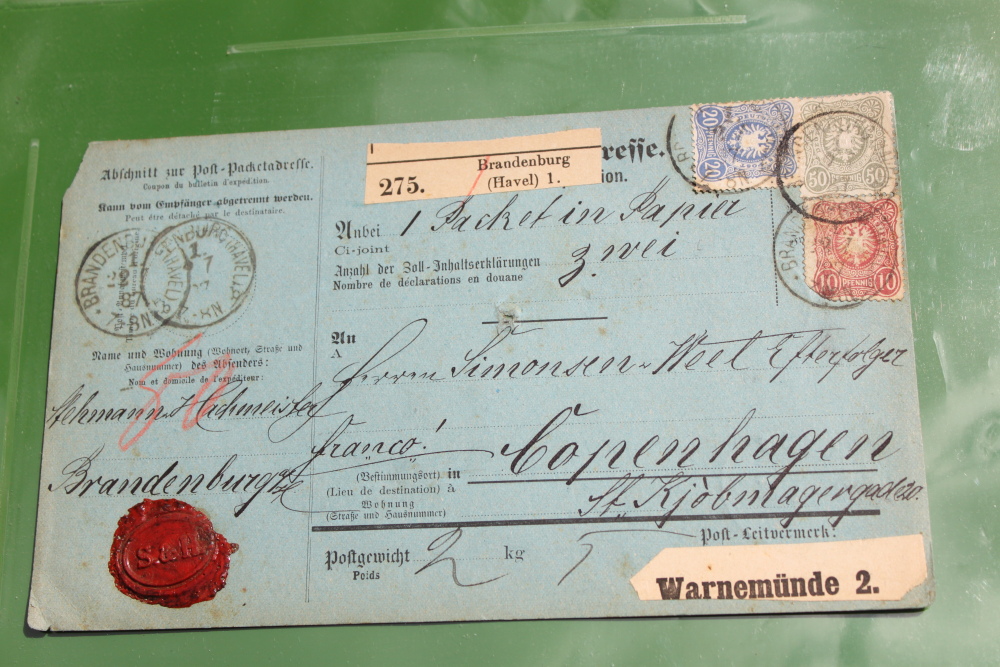 Abschnitt zur Post-Packetadresse.
Coupon du bulletin d'expédition.
Kann vom Empfänger abgetrennt werden.
Peut être détaché par le destinataire.
BRANDENBURG (HAVEL)
1
7
7-8N
Name und Wohnung (Wohnort, Straße und
Hausnummer) des Absenders:
Nom et domicile de l'expéditeur:
Hachmeister
Brandenburg a/H
S & H
275.
Brandenburg
(Havel) 1.
resse.
ion.
Anbei 1 Packet in Papier
Ci-joint
Anzahl der Zoll-Inhaltserklärungen zwei
Nombre de déclarations en douane
An
A
Herren Simonsen & Weel Efterfolger
franco!
Copenhagen
(Bestimmungsort) in
(Lieu de destination) à
Wohnung
(Straße und Hausnummer)
St. Kjöbmagergade 20.
Post-Leitvermerk:
Postgewicht 2 kg
Poids
Warnemünde 2.
20 20
50 PFENNIG 50
10 PFENNIG 10